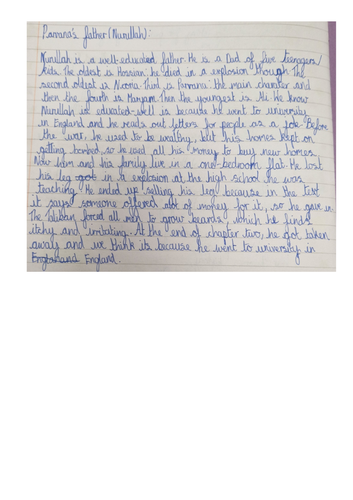 Parvana's father (Nurullah):
Nurullah is a well-educated father. He is a Dad of five teenagers/
kids. The oldest is Hossian, he died in a explosion though. The
second oldest is Noora. Third is Parvana the main character and
then the fourth is Maryam. Then the youngest is Ali. We know
Nurullah is educated-well is because he went to university
in England and he reads out letters for people as a job. Before
the war, he used to be wealthy, but his homes kept on
getting bombed, so he used all his money to buy new homes.
Now him and his family live in a one-bedroom flat. He lost
his leg got in a explosion at the high school he was
teaching. He ended up selling his leg because in the text
it says someone offered alot of money for it, so he gave in.
The Taliban forced all men to grow beards, which he finds
itchy and irritating. At the end of chapter two, he got taken
away and we think its because he went to university in
England.